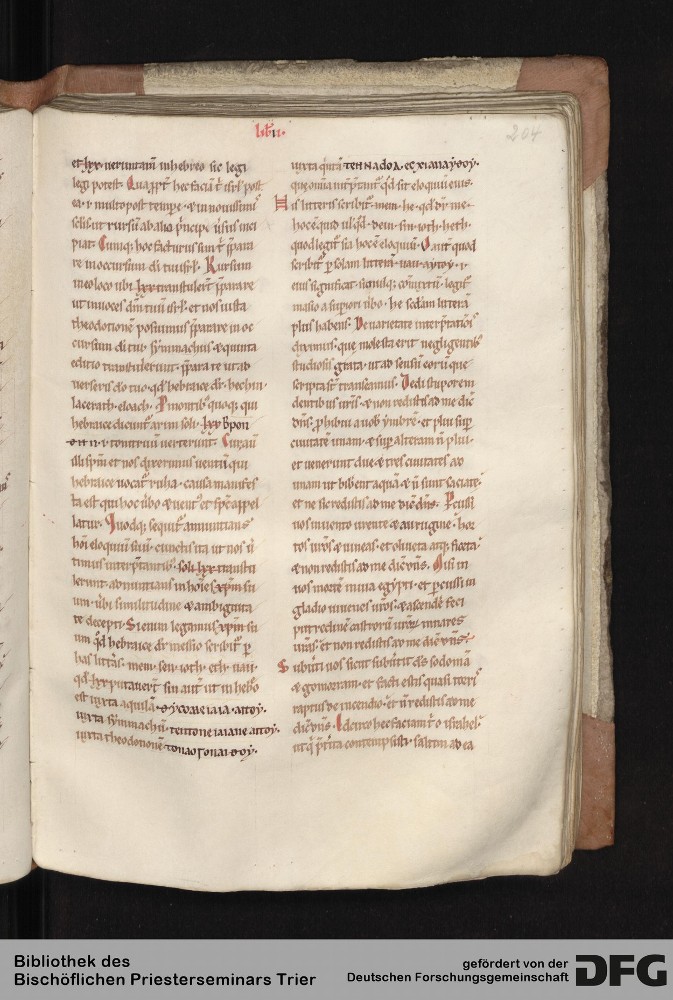 lib̄ ii.
204
et lxx. veruntam̄ in hebreo sic legi
legi potest. Quap̄pt̄ hec faciā t̄ isrl̄ post
ea. t̄ multo post tempe. & in novissimis
piat. Cumq; hoc facturus sim t̄ p̄para
re in occursum dī tui isrl̄. Rursum
in eo loco ubi lxx transtulert̄ p̄parare
ut invoces dn̄m tuū isrl̄. et nos iuxta
theodotionē posuimus p̄parare in oc
cursum dī tui. symmachus & quinta
editio transtulerunt. p̄parare ut ad
verseris dō tuo. qd̄ hebraice dr̄. hechin
lacerath. eloach. P montib; quoq; qui
hebraice dicunt᷒ arim soli. lxx
t̄ tonitruū verterunt. Cur aūt
illi spm̄ et nos dixerimus ventū qui
hebraice vocat᷒ ruha. causa manifes
ta est qui hoc ūbo & vent᷒ et spc̄ appel
latur. Quodq; sequit᷒ annuntians
hōi eloquiū suū. cunctis ita ut nos ū
timus interp̄tantib; soli lxx transtu
lerunt. adnuntians in hoīes xp̄m su
um. ūbi similitudine & ambiguita
te decepti. Si enim legimus xp̄m su
um qd̄ hebraice dr̄ messio scribit᷒ p̱
has litt̄as. mem. sen. ioth. eth. vau.
qd̄ lxx putavert̄. sin aut̄ ut in heb̄o
est iuxta aquilā.
iuxta symmachū.
iuxta theodotionē
iuxta q̄ntā
que om̄ia int̄p̄tant᷒ qd̄ sit eloquiū eius.
Mis litteris scribit᷒. mem. he. qd̄ dr̄ me.
hoc ē quid ul̄ qd̄. dein. sin. ioth. heth.
quod legit᷒ sia hoc ē eloquiū. O aut̄ quod
scribit᷒ p̱ solam litterā. vau. ΑΥΤΟΥ. i.
eius significat.
masio a supiori ūbo. he sedam litterā
plus habens. De varietate interp̄tatiōis
diximus. que molesta erit negligentib;
studiosis grata. ut ad sensū eorū que
scripta st̄ transeamus. Dedi stuporem
dentibus ur̄is. & non redistis ad me dic̄
dn̄s. p̱hibui a vob ymbrē. et plui sup
civitatē unam. & sup alteram n̄ plui.
et venerunt due & tres civitates ad
unam ut bib ent aquā & n̄ sunt saciate
et ne sic redistis ad me dic̄ dn̄s. Pcussi
vos in vento urente & aurugine. hor
tos ur̄os & vineas. et oliveta atq; ficeta.
& non redistis ad me dic̄ dn̄s. Misi in
vos mortē in via egypti. et percussi in
gladio iuvenes ur̄os. & ascendē feci
putredinē castrorū ur̄orū in nares
ur̄as. et non redistis ad me dic̄ dn̄s.
Subūti vos sicut subūtit dē s sodomā
& gomorram. et facti estis quasi torris
raptus de incendio. et n̄ redistis ad me
dic̄ dn̄s. Idcirco hec faciam t̄ o israhel.
ut q̄ p̄t̄ita contempsisti. saltim ad ea
Bibliothek des
Bischöflichen Priesterseminars Trier
gefördert von der
Deutschen Forschungsgemeinschaft
DFG